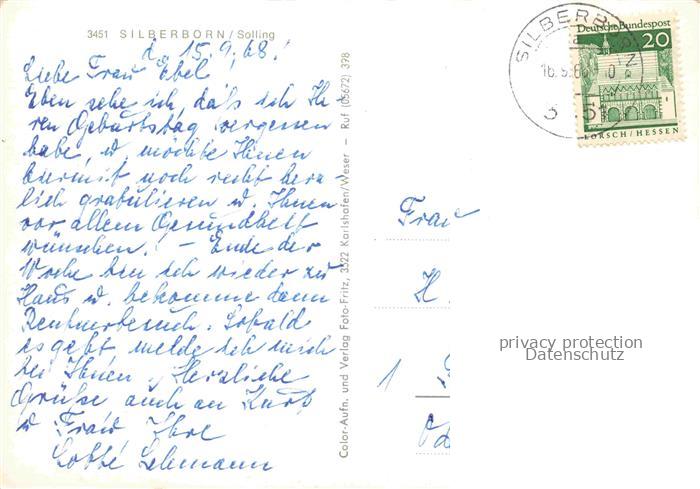 3451 SILBERBORN / Solling
d. 15.9.68.
Liebe Frau Ebel,
Eben sehe ich, daß ich Ih-
ren Geburtstag vergessen
habe, u. möchte Ihnen
hiermit noch recht herz-
lich gratulieren u. Ihnen
vor allem Gesundheit
wünschen! – Ende der
Woche bin ich wieder zu
Haus u. bekomme dann
Rentnerbesuch. Sobald
es geht melde ich mich
bei Ihnen, Herzliche
Grüße auch an Kurt
u. Ihre
Lotte Lehmann
Color-Aufn. und Verlag Foto-Fritz, 3522 Karlshafen/Weser – Ruf (05672) 398
SILBERBORN
16.9.68
Deutsche Bundespost
20
LORSCH / HESSEN
Frau
H.
1
privacy protection
Datenschutz